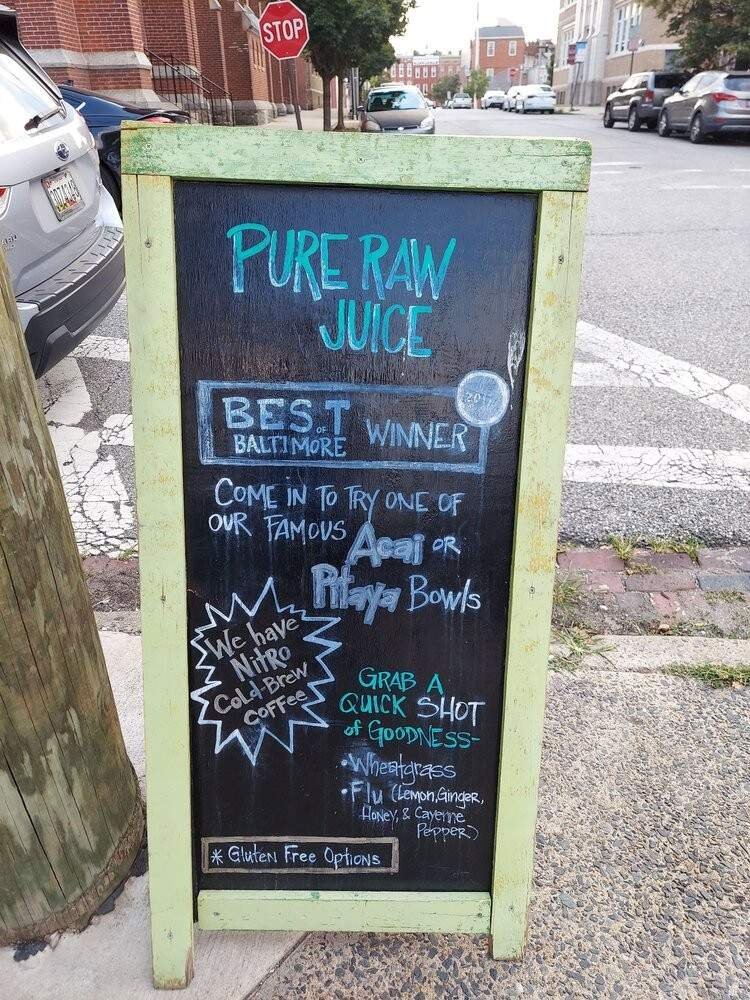 STOP
PURE RAW
JUICE
2017
BEST OF
BALTIMORE WINNER
COME IN TO TRY ONE OF
OUR FAMOUS Acai OR
Pitaya Bowls
We have
NITRO
COLd-BREW
COFFee
GRAB A
QUICK SHOT
of GOODNESS-
•Wheatgrass
•Flu (Lemon, Ginger,
Honey, & Cayenne
Pepper)
* Gluten Free Options